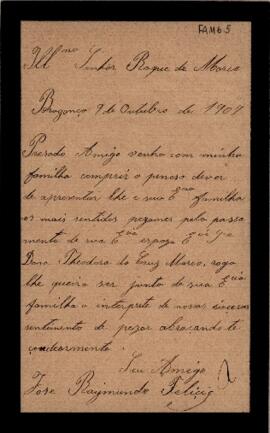 FAM 6 5
Ill.mo Senhor Roque de Marco
Bragança 9 de Outubro de 1909
Presado Amigo venho com minha
familha comprir o penoso dever
de apresentar lhe e sua Exma familha
os mais sentidos pezames pelo passa
mento de sua Exma espoza Exma Sra
Dona Theodora da Cruz Marco, rogo
lhe queira ser junto de sua Exma
familha o interprete de nossos sinceros
sentimento de pezar abraçando-te
Seu Amigo
José Raymundo Felicio